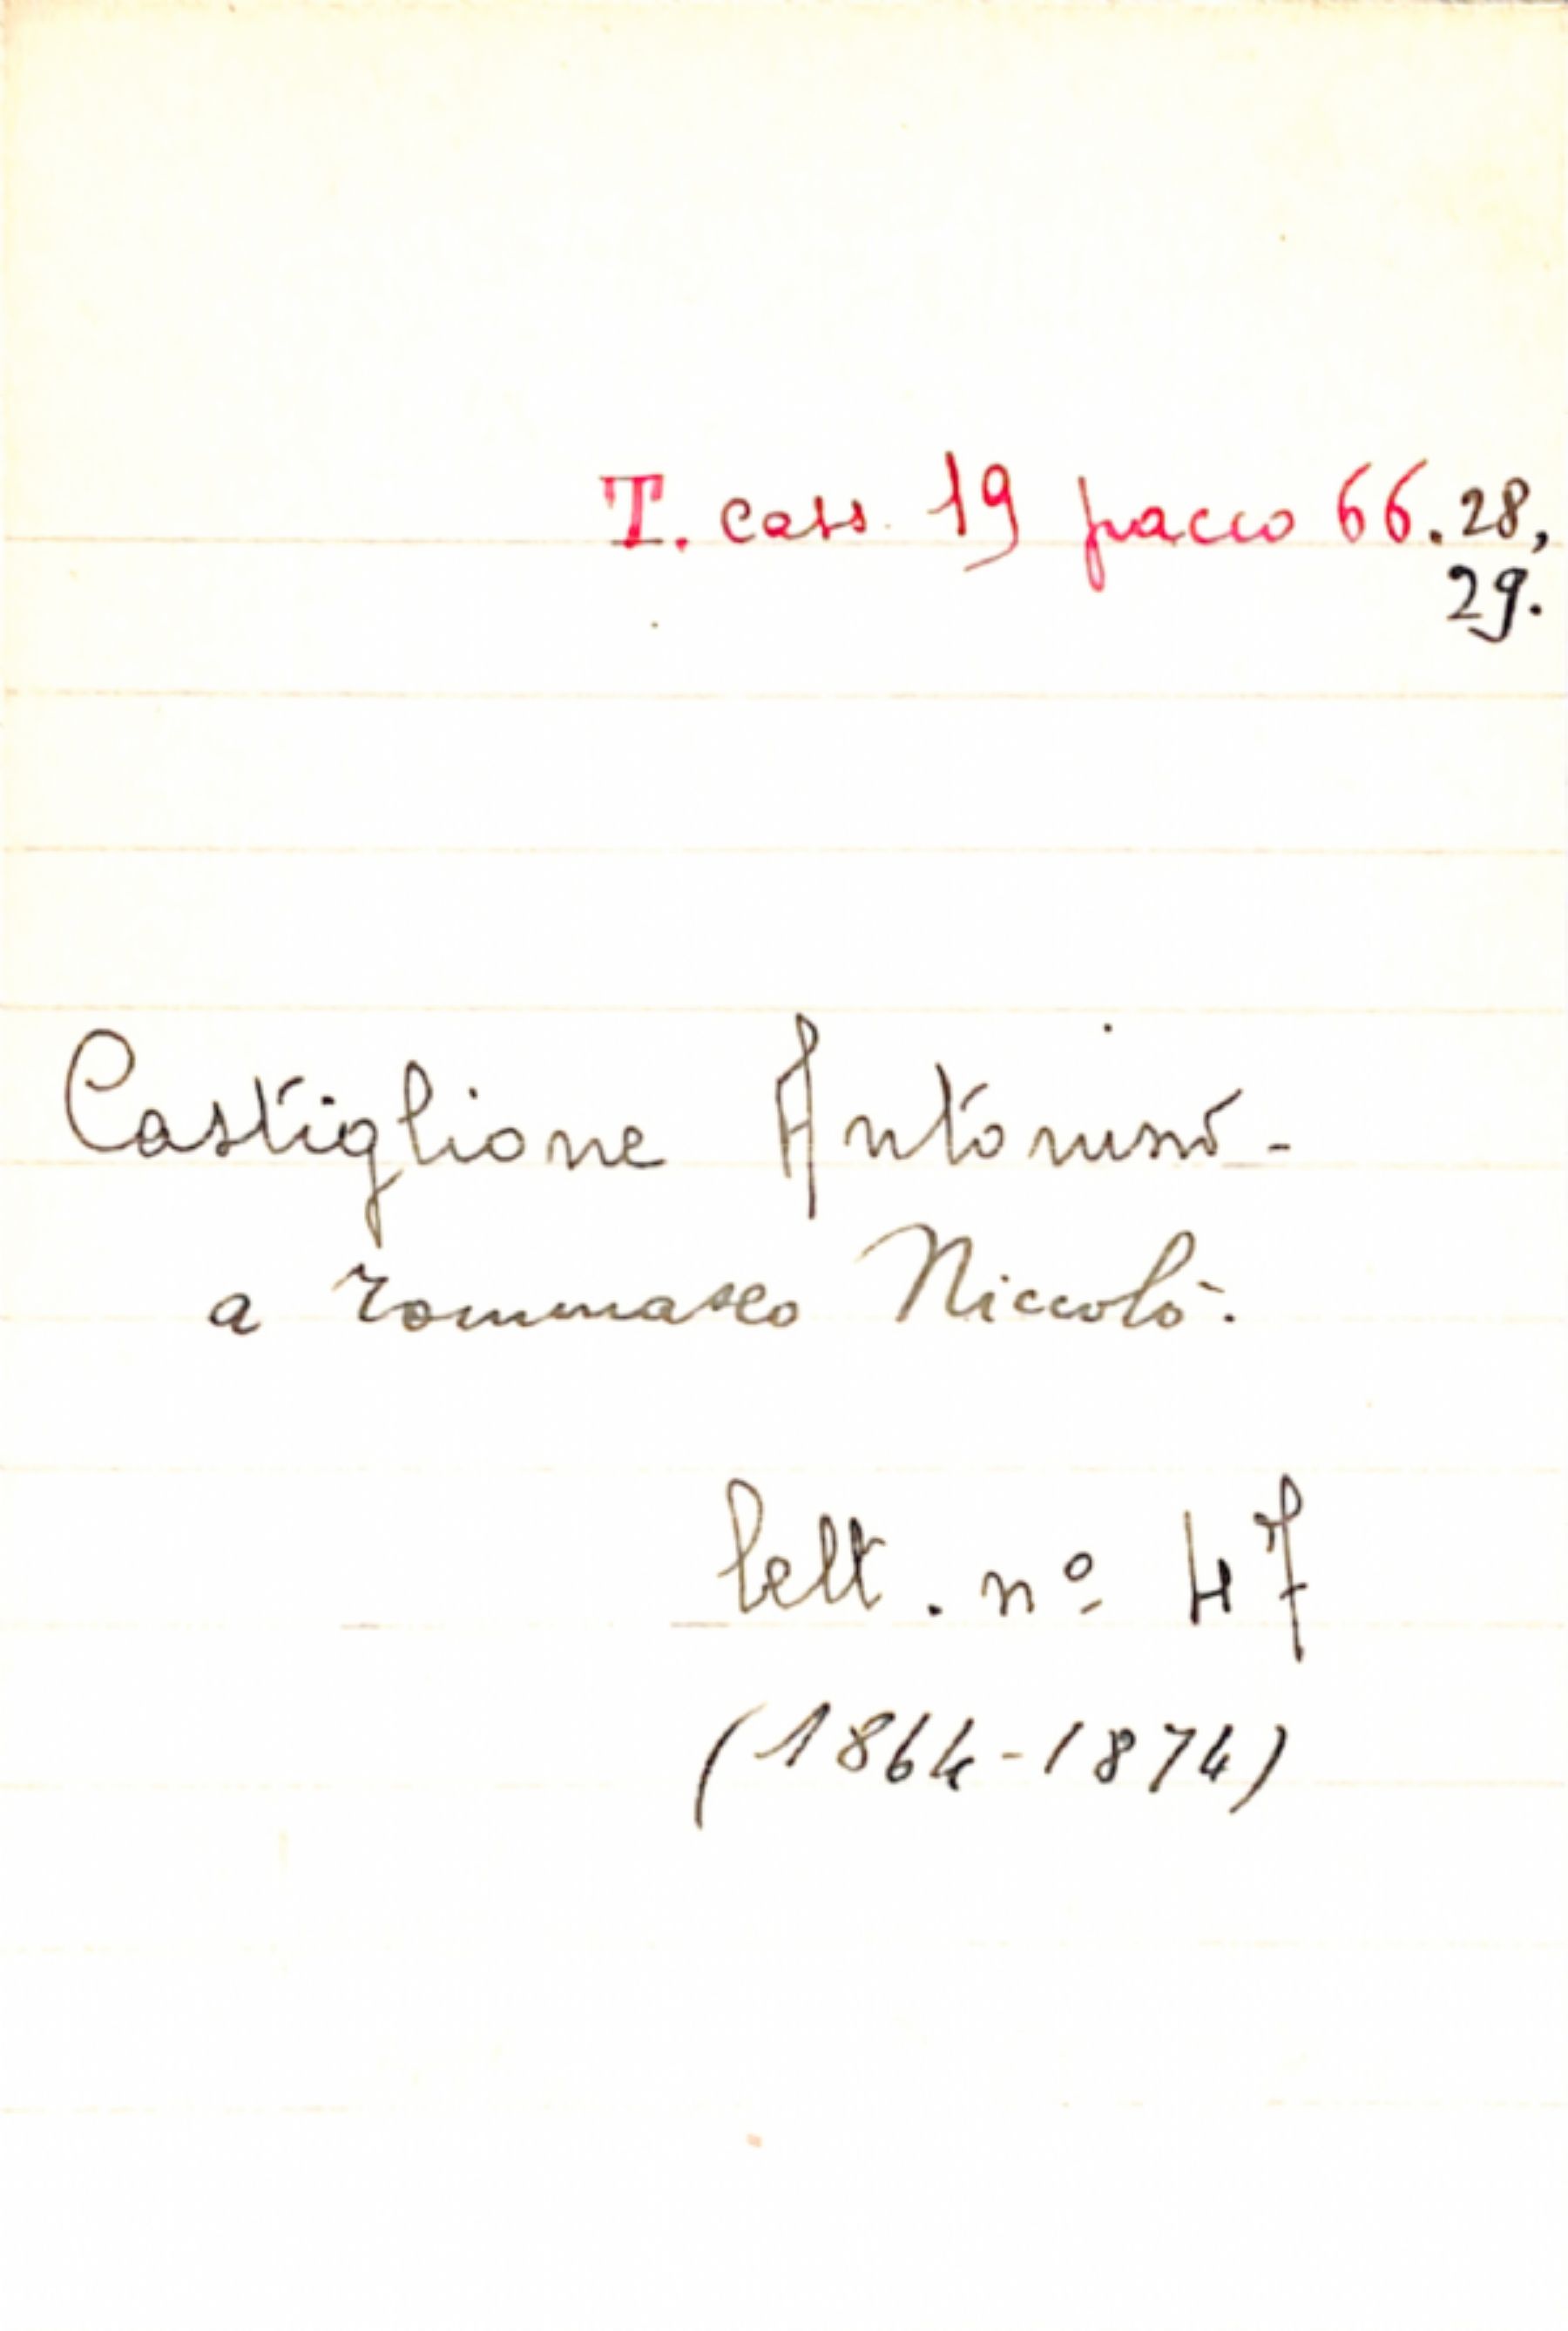 T. cass. 19 pacco 66.28,
29.
Castiglione Antonino -
a Tommaseo Niccolò.
lett. nº 47
(1864-1874)